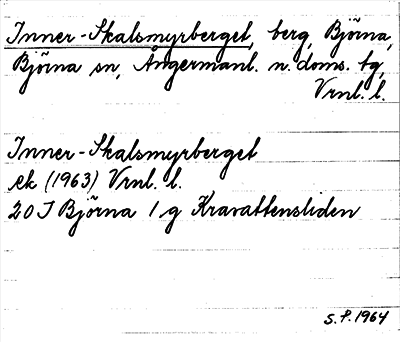 Inner-Skalsmyrberget, berg, Björna,
Björna sn, Ångermanl. n. doms. tg,
Vrnl. l.
Inner-Skalsmyrberget
ek (1963) Vrnl. l.
20 J Björna 1 g Kravattensliden
S.P. 1964